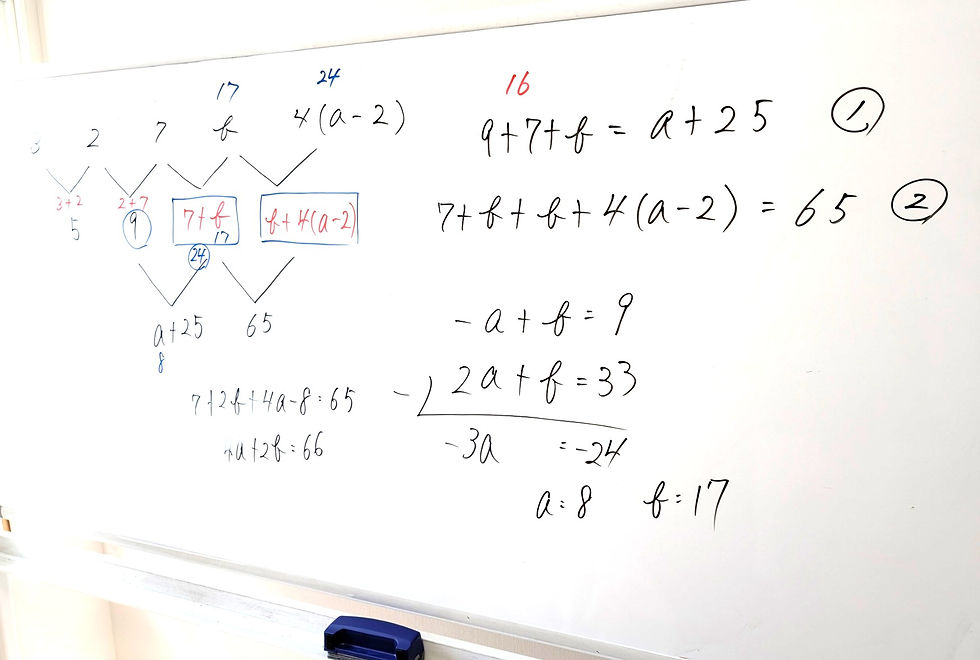 17 24
3 2 7 b 4(a-2)
3+2 2+7 7+b b+4(a-2)
5 9 17
24
a+25 65
8
7+2b+4a-8=65
4a+2b=66
16
9+7+b = a+25 ①
7+b+b+4(a-2) = 65 ②
-a+b=9
-) 2a+b=33
-3a =-24
a=8 b=17